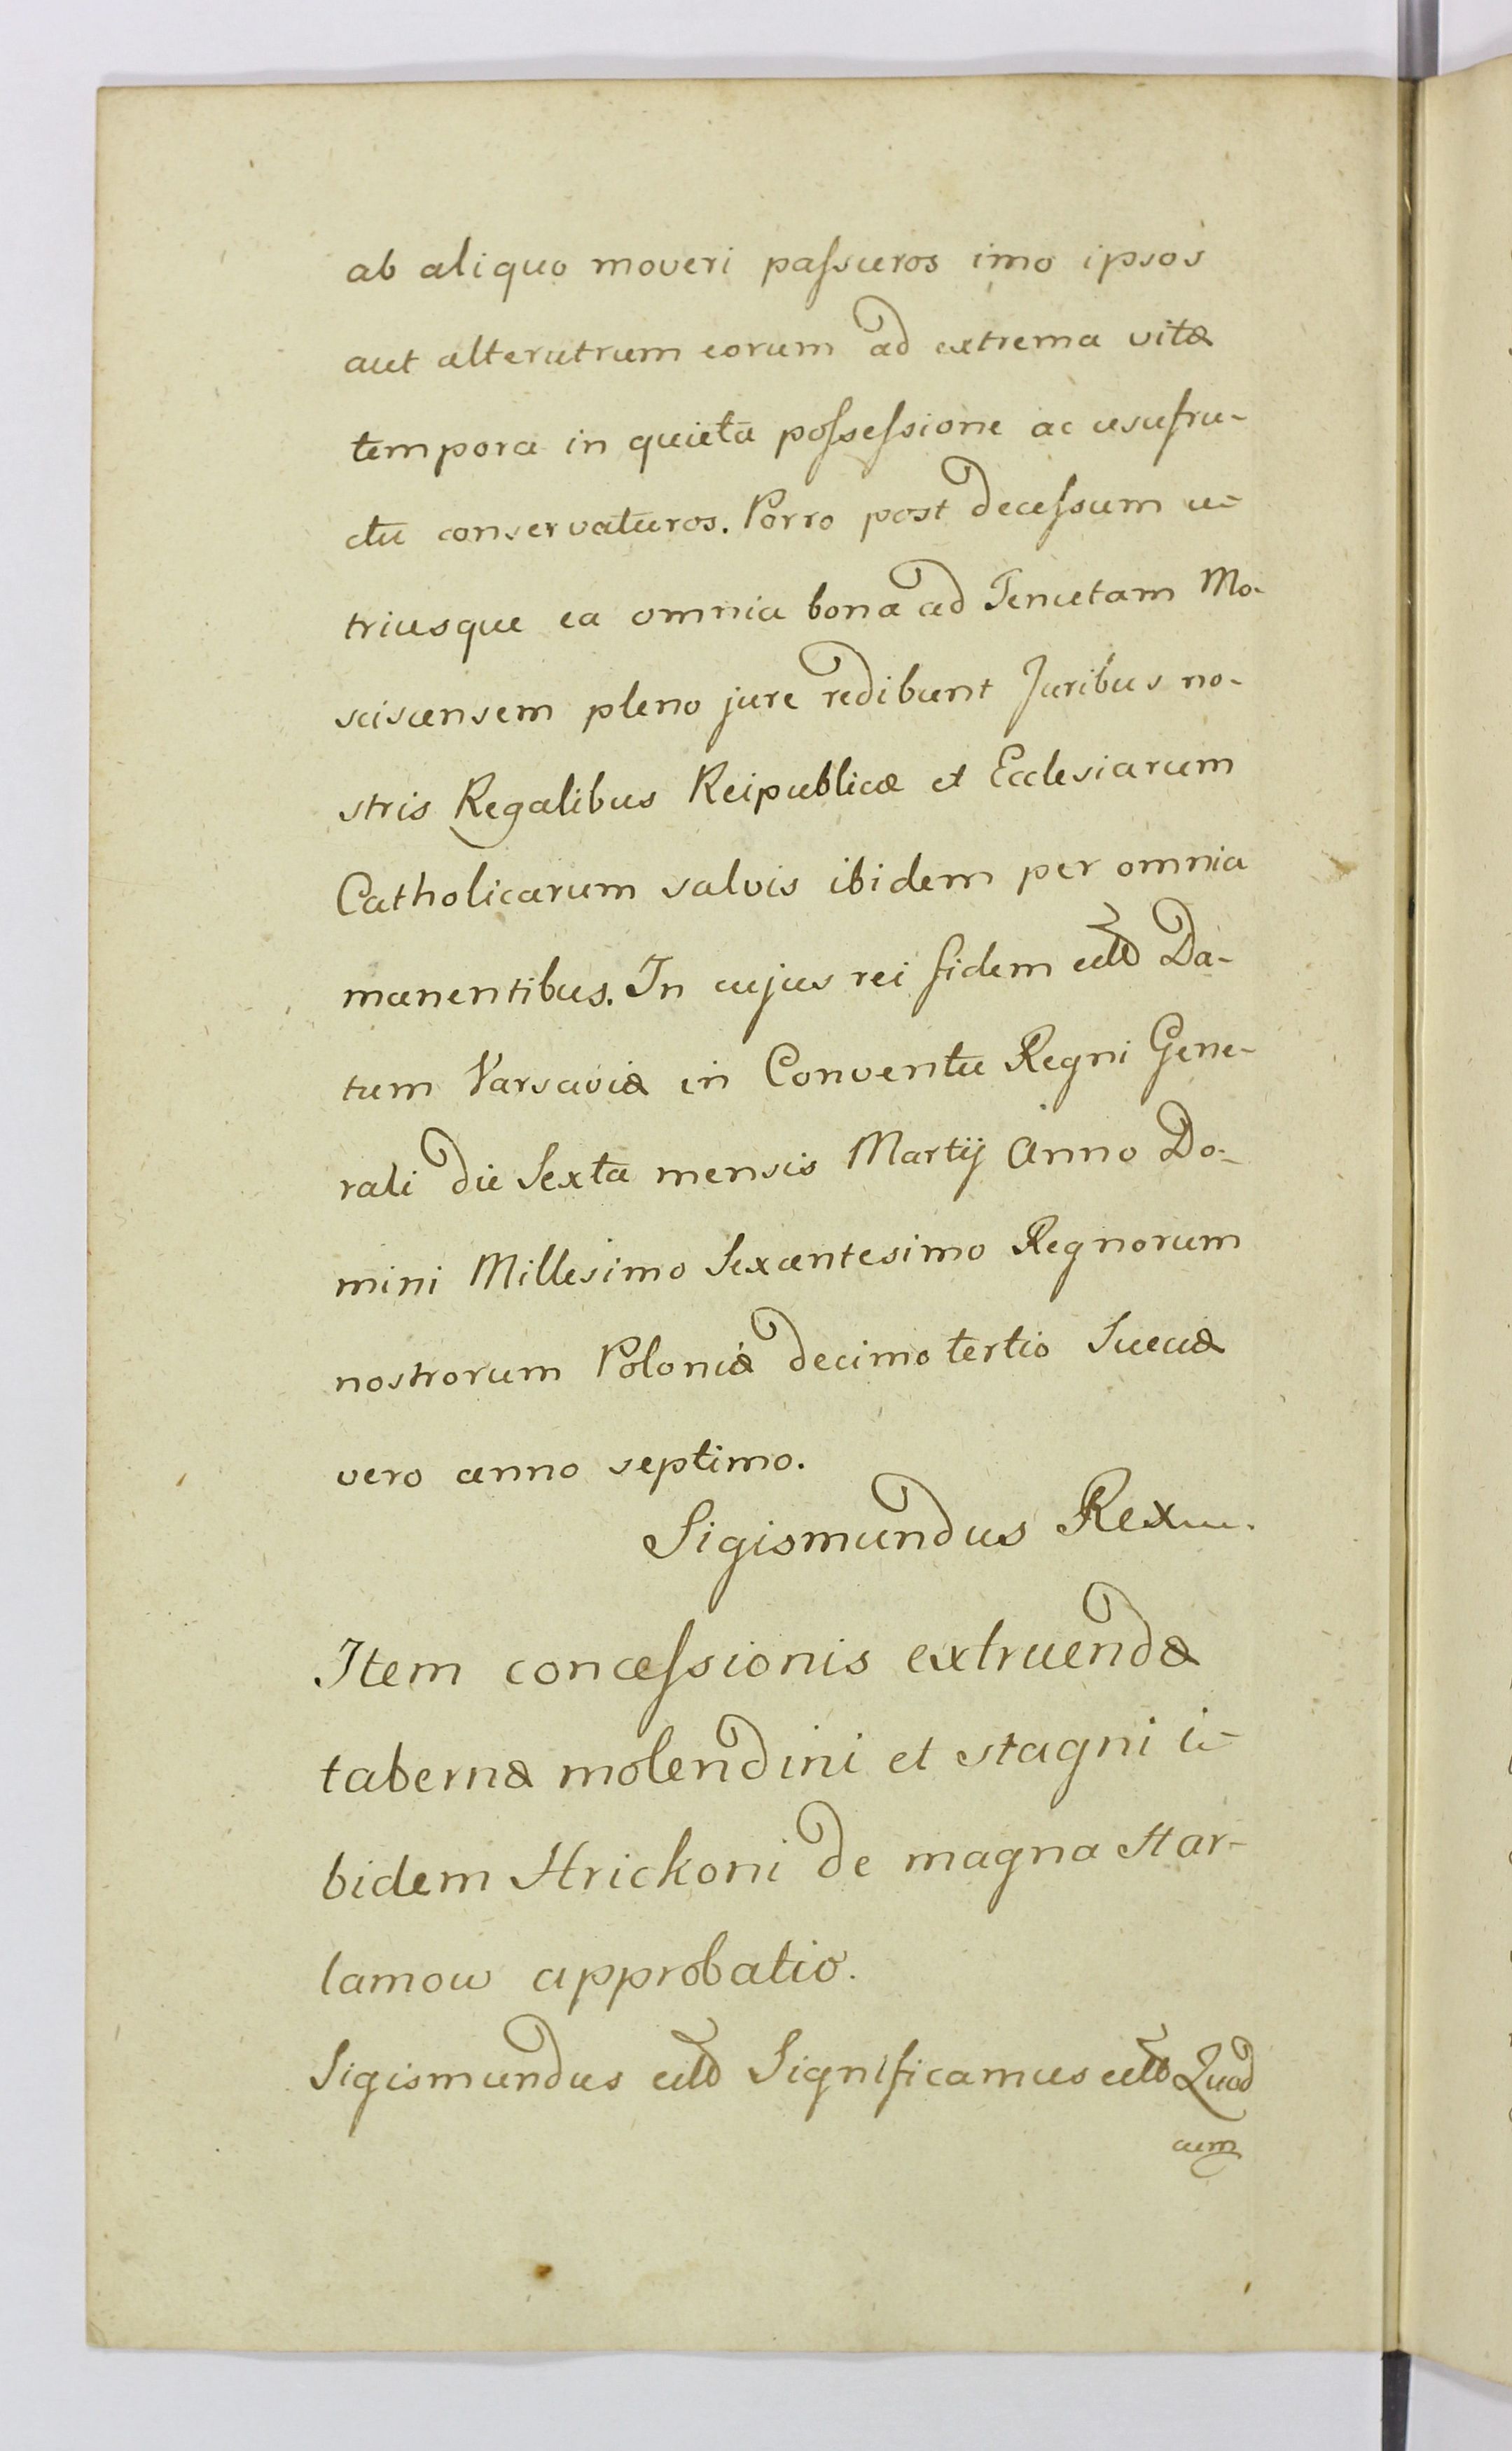 ab aliquo moveri paſsuros imo ipsos
aut alterutrum eorum ad extrema vitæ
tempora in quieta poſseſsione ac usufru-
ctu conservaturos. Porro post deceſsum u-
triusque ea omnia bona ad Tenutam Mo-
sciscensem pleno jure redibunt Juribus no-
stris Regalibus Reipublicæ et Ecclesiarum
Catholicarum salvis ibidem per omnia
manentibus. In cujus rei fidem etc Da-
tum Varsaviæ in Conventu Regni Gene-
rali die Sexta mensis Martij Anno Do-
mini Millesimo Sexcentesimo Regnorum
nostrorum Poloniæ decimo tertio Sueciæ
vero anno septimo.
Sigismundus Rex
Item conceſsionis extruendæ
tabernæ molendini et stagni i-
bidem Hrickoni de magna Har-
lamow approbatio.
Sigismundus etc Significamus etc Quod
cum